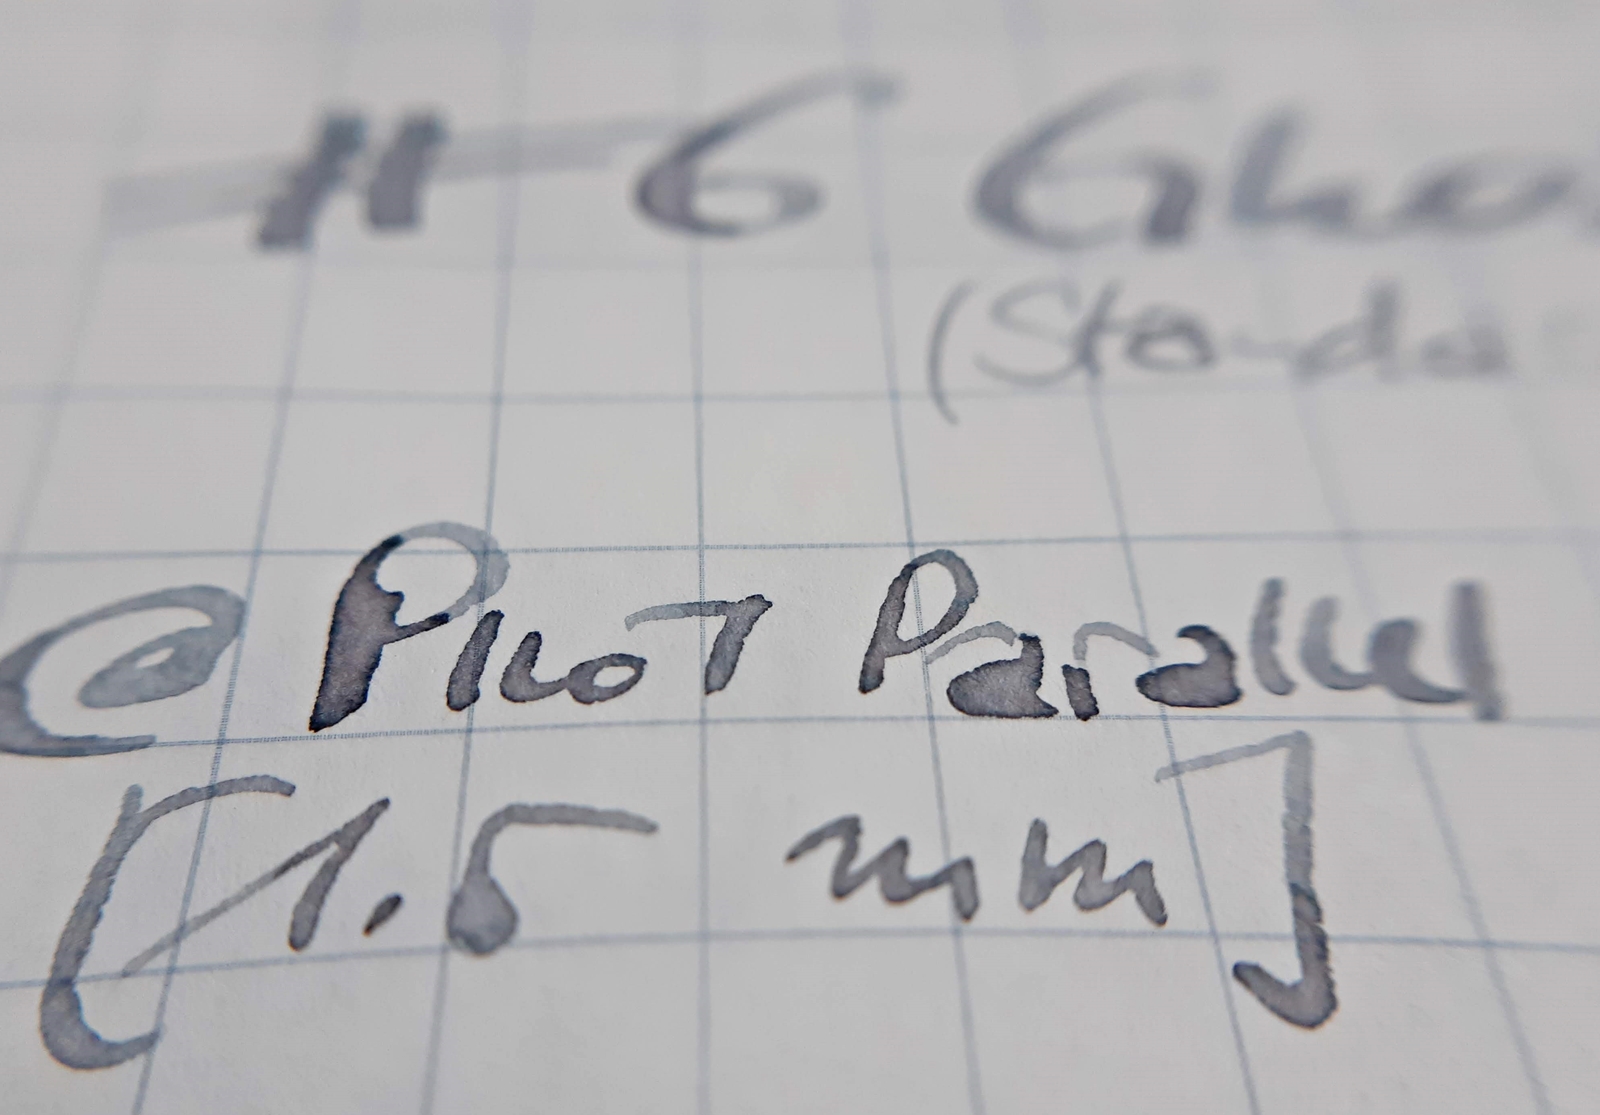 # 6 Gho
(Standa
@ Pilot Parallel
[1.5 mm]